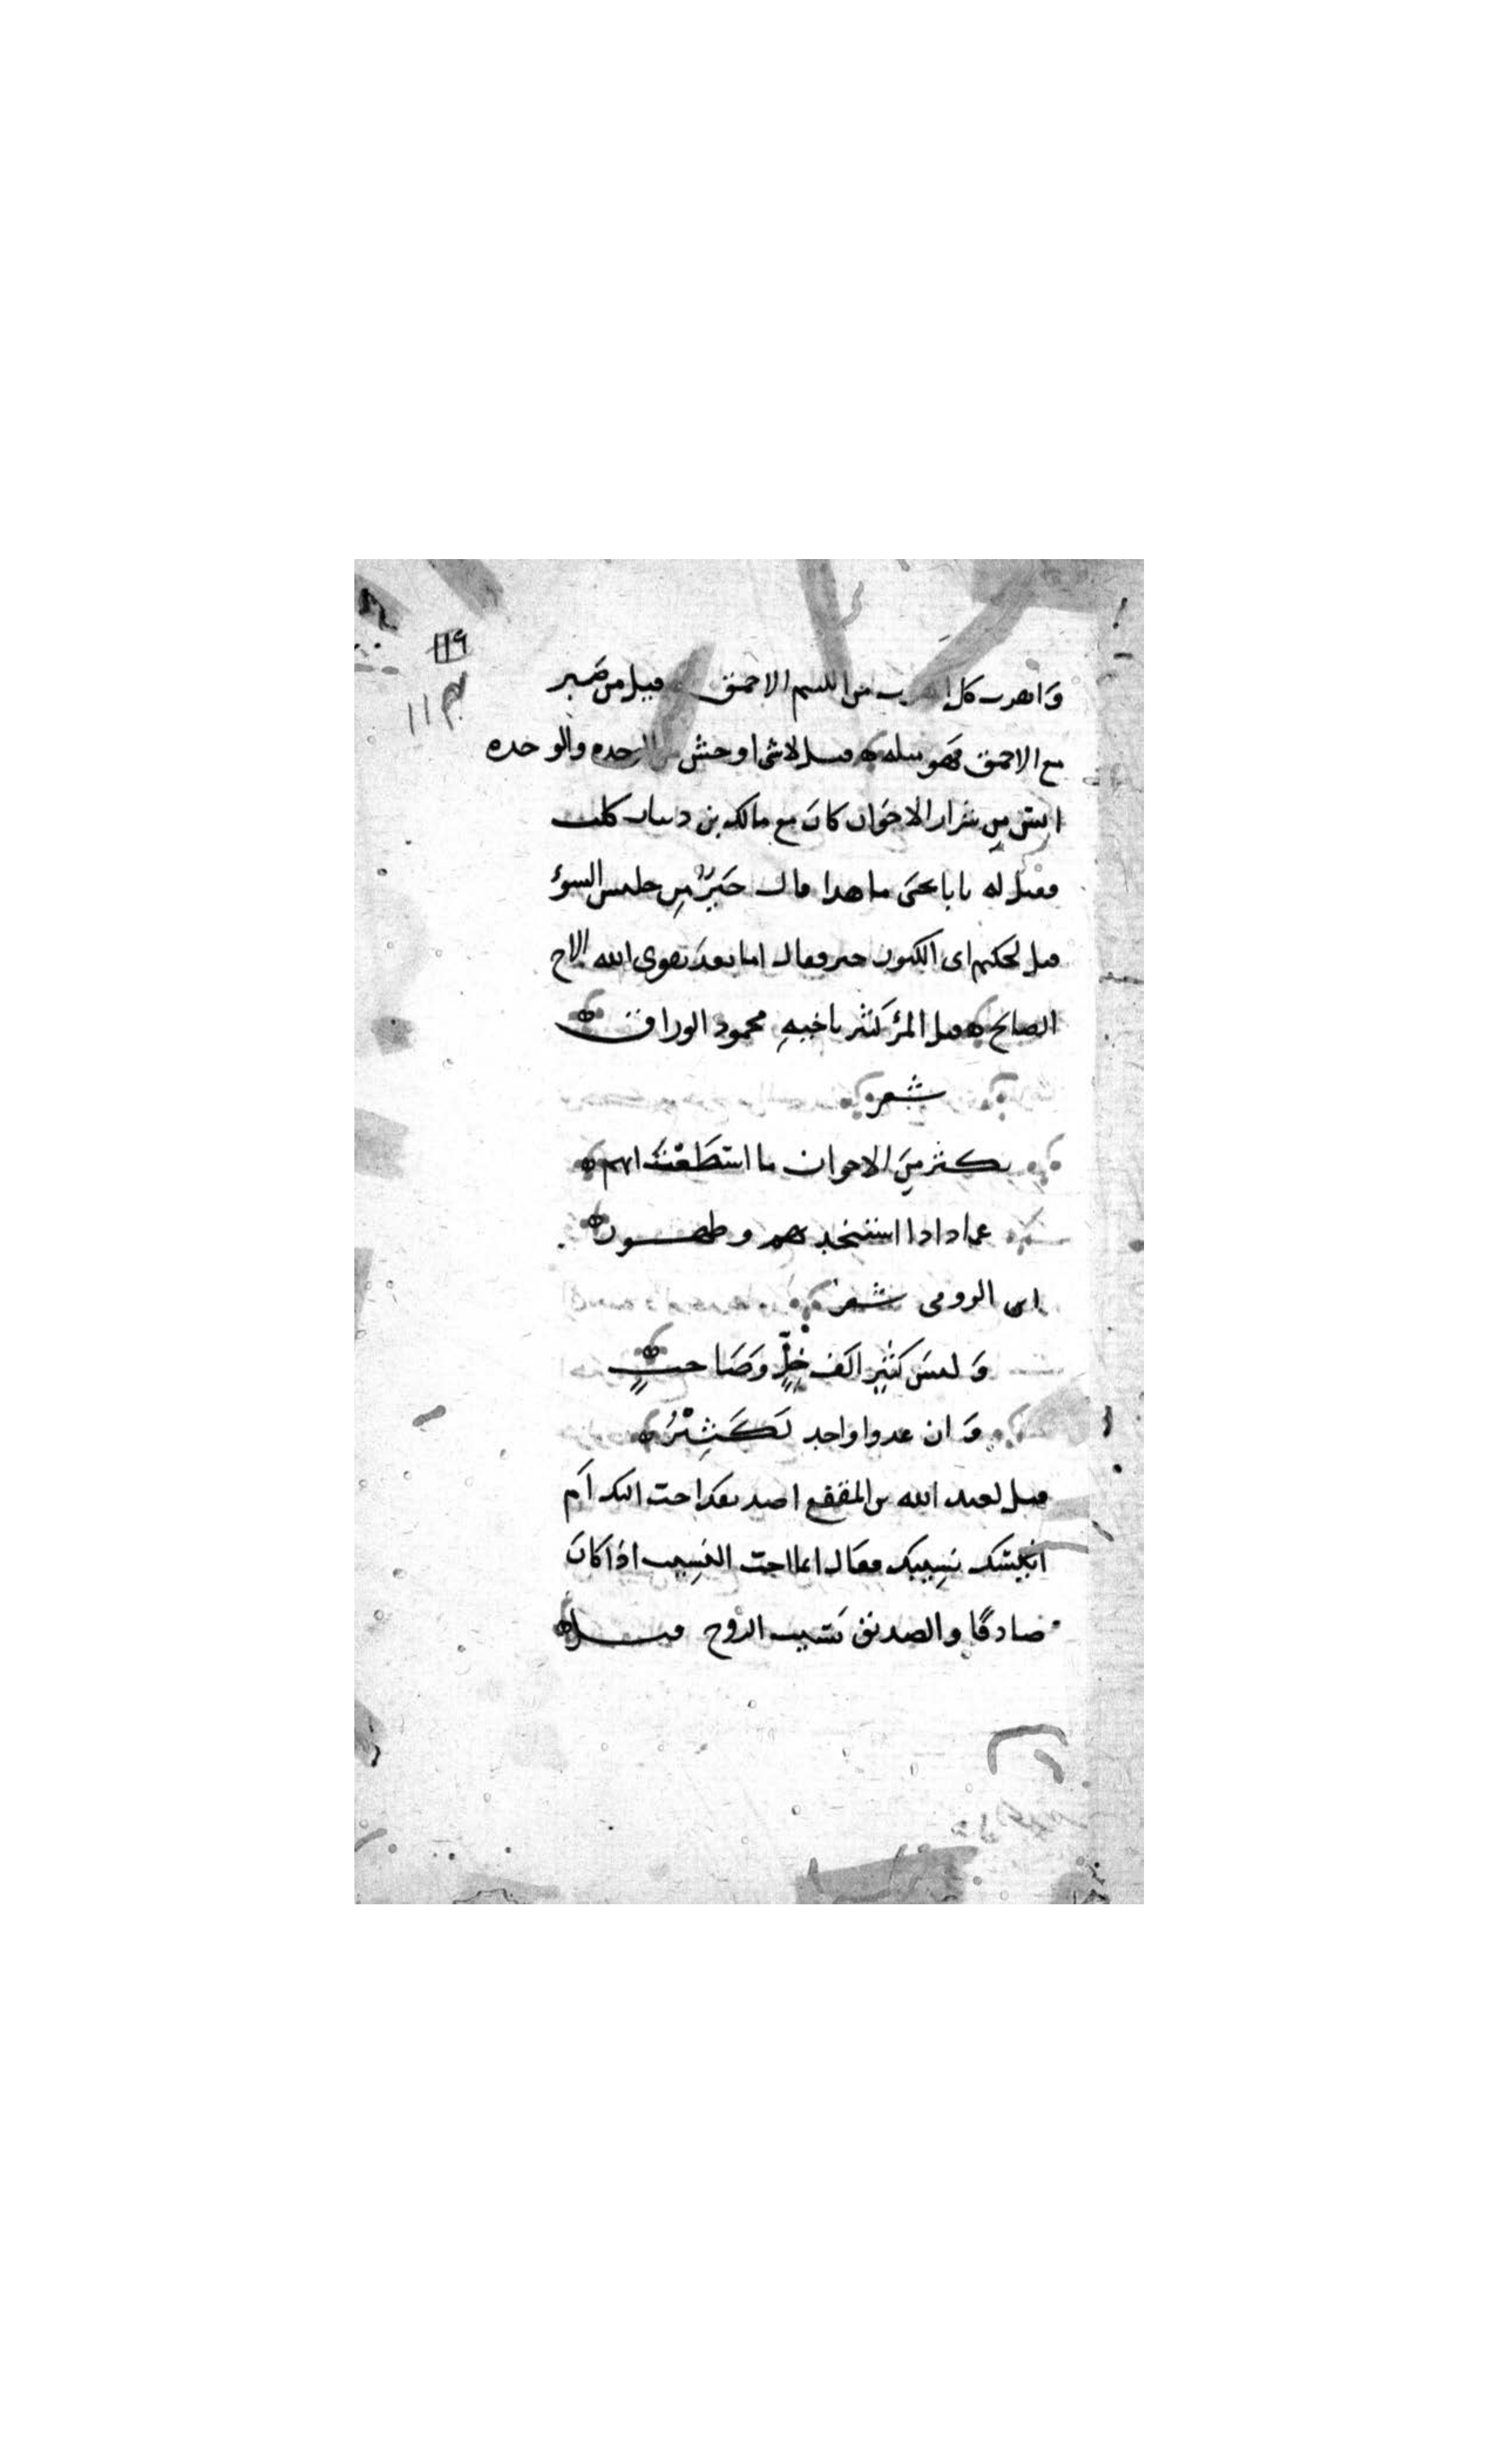 ١١٩
واهرب كل الهرب من اللئيم الاحمق قيل من صبر
مع الاحمق فهو مثله ه قيل لا شئ اوحش من الوحده والوحده
انس من شرار الاخوان كان مع مالك بن دينار كلب
فقيل له يا با يحيى ما هذا قال خَيرٌ من جليس السوء
قيل لحكيم اى الكنوز خير فقال اما بعد تقوى الله الاخ
الصالح ه قيل المرؤ كثير باخيهِ محمود الوراق
شعر
تكثر مِنَ الاخوان ما استطَعْتَ انهم ه
عماد اذا استنجدتهم وظهـور ه
ابن الرومى شعر
وَليسَ كثير الف خِلٍّ وَصَاحبٍ
وَان عدوا واحد لَكَثِيْرُ ه
قيل لعبد الله بن المقفع اصديقك احب اليك اَم
نسيبك فقال انما احب النسيب اذا كانَ
صادقًا والصديق نسيب الروح قيل